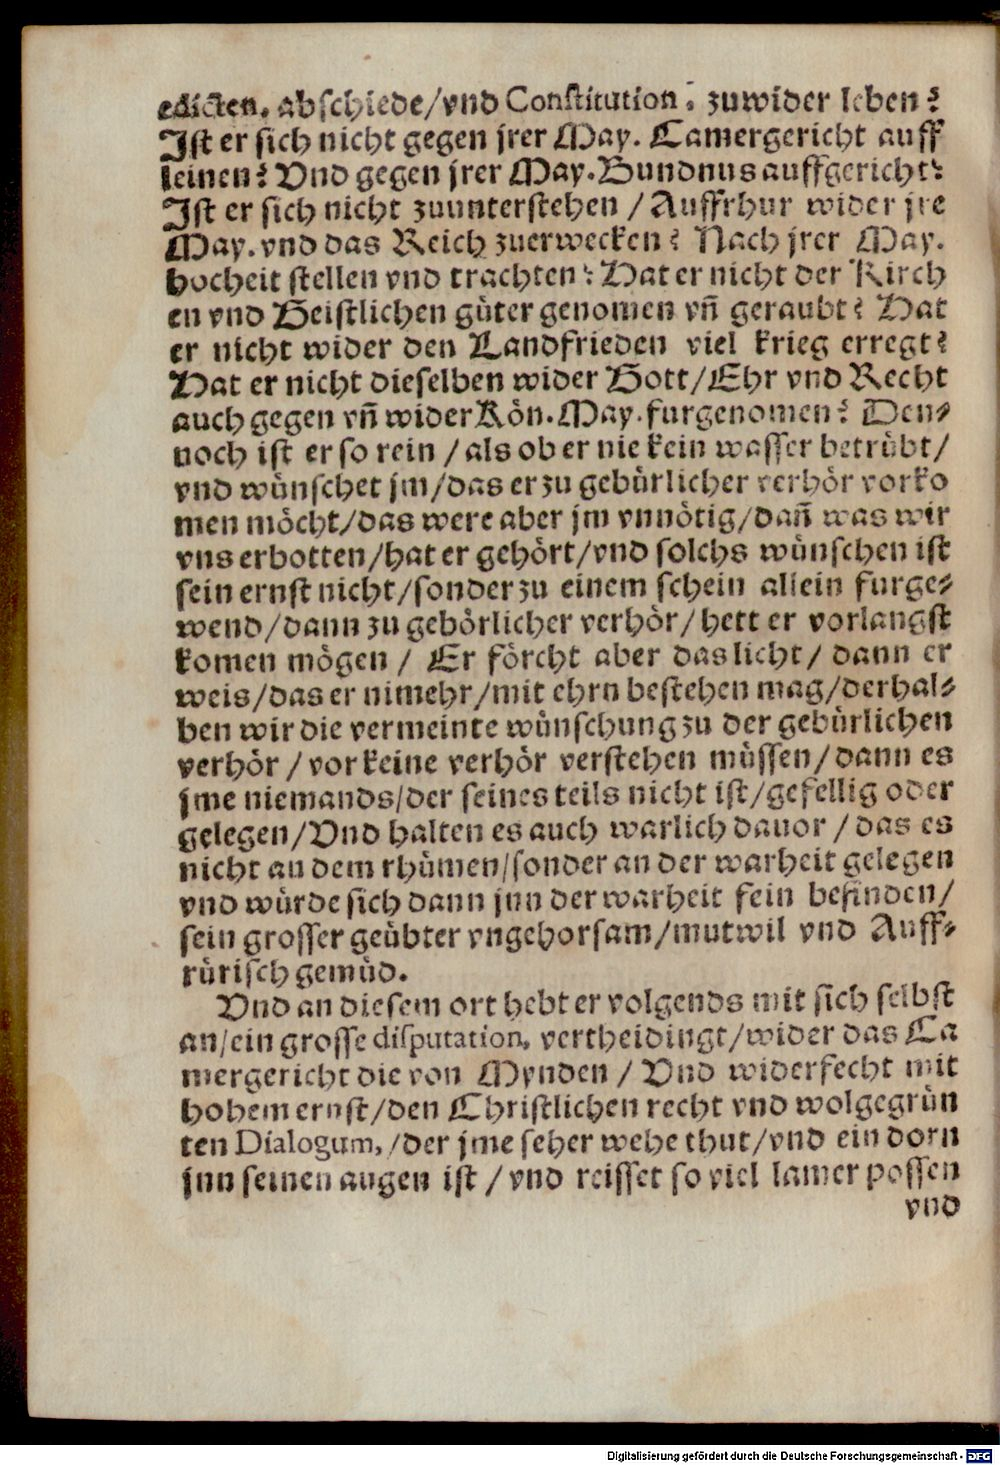 edicten. abschiede/vnd Constitution. zuwider leben?
Ist er sich nicht gegen jrer May. Camergericht auff
leinen? Vnd gegen jrer May. Bundnus auffgericht?
Ist er sich nicht zuunterstehen / Auffrhur wider jre
May. vnd das Reich zuerwecken? Nach jrer May.
hocheit stellen vnd trachten? Hat er nicht der Kirch
en vnd Geistlichen güter genomen vñ geraubt? Hat
er nicht wider den Landfrieden viel krieg erregt?
Hat er nicht dieselben wider Gott/Ehr vnd Recht
auch gegen vñ wider Kön. May. furgenomen? Den-
noch ist er so rein / als ob er nie kein wasser betrübt/
vnd wünschet jm/das er zu gebürlicher verhör vorko
men möcht/das were aber jm vnnötig/dañ was wir
vns erbotten/hat er gehört/vnd solchs wünschen ist
sein ernst nicht/sonder zu einem schein allein furge-
wend/dann zu gebörlicher verhör/hett er vorlangst
komen mögen / Er förcht aber das licht/ dann er
weis/das er nimehr/mit ehrn bestehen mag/derhal-
ben wir die vermeinte wünschung zu der gebürlichen
verhör / vor keine verhör verstehen müssen/dann es
jme niemands/der seines teils nicht ist/gefellig oder
gelegen/Vnd halten es auch warlich dauor / das es
nicht an dem rhümen/sonder an der warheit gelegen
vnd würde sich dann jnn der warheit fein befinden/
sein grosser geübter vngehorsam/mutwil vnd Auff-
rürisch gemüd.
Vnd an diesem ort hebt er volgends mit sich selbst
an/ein grosse disputation, vertheidingt/wider das Ca
mergericht die von Mynden / Vnd widerfecht mit
hohem ernst/den Christlichen recht vnd wolgegrün
ten Dialogum,/der jme seher wehe thut/vnd ein dorn
jnn seinen augen ist / vnd reisset so viel lamer possen
vnd
Digitalisierung gefördert durch die Deutsche Forschungsgemeinschaft - DFG